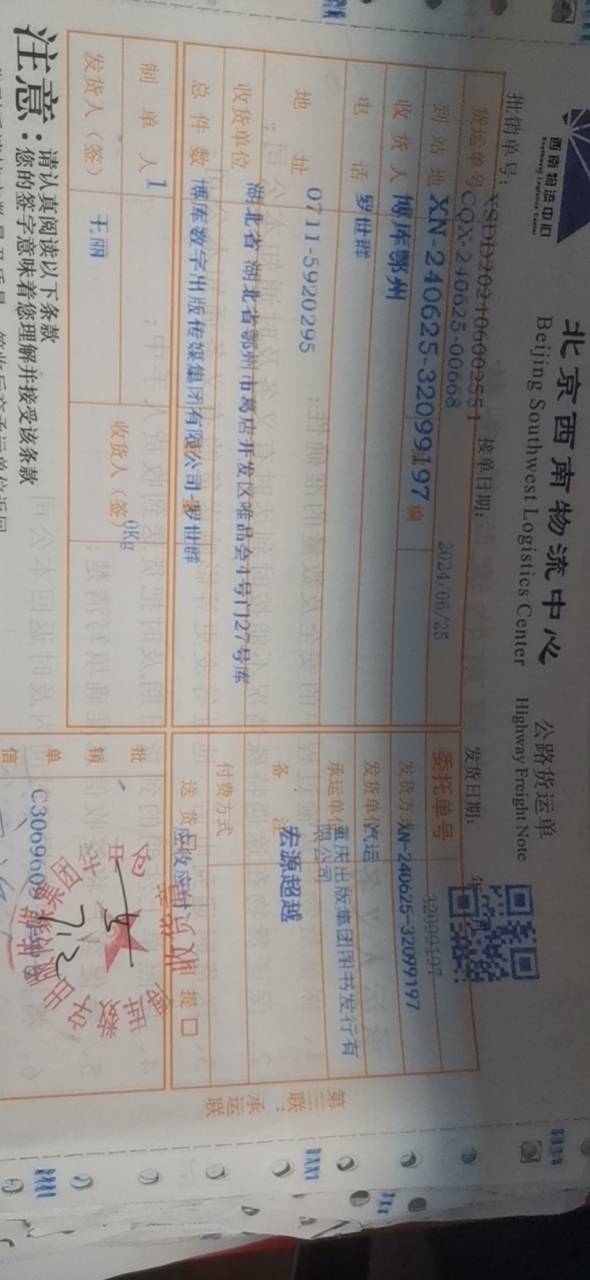 西南物流中心
Southwest Logistics Center
北京西南物流中心
公路货运单
Beijing Southwest Logistics Center
Highway Freight Note
批销单号：
XSDD2024060002551
接单日期：
2024/06/25
发货日期：
年
货运单号
CQX-240625-00668
委托单号
32099197
到站地
XN-240625-32099197
发货方
XN-240625-32099197
收货人
博库鄂州
发货单位
汽运
电话
罗世群
承运单位
重庆出版集团图书发行有
限公司
地址
0711-5920295
备注
宏源超越
收货单位
湖北省 湖北省鄂州市葛店开发区唯品会4号门27号库
付费方式
总件数
博库数字出版传媒集团有限公司-罗世群
送货
应收应付
自提 □
制单人
1
0Kg
发货人（签）
王丽
收货人（签）
批
销
单
信
C3069609
收货专
7.2
第三联：承运联
注意：
请认真阅读以下条款
您的签字意味着您理解并接受该条款